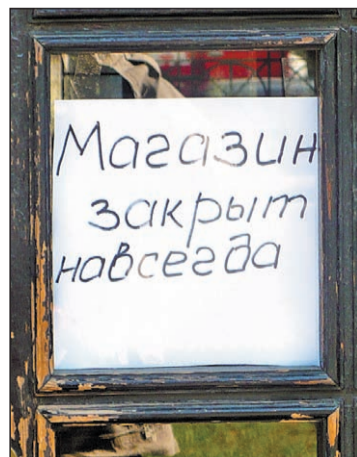 Магазин
закрыт
навсегда